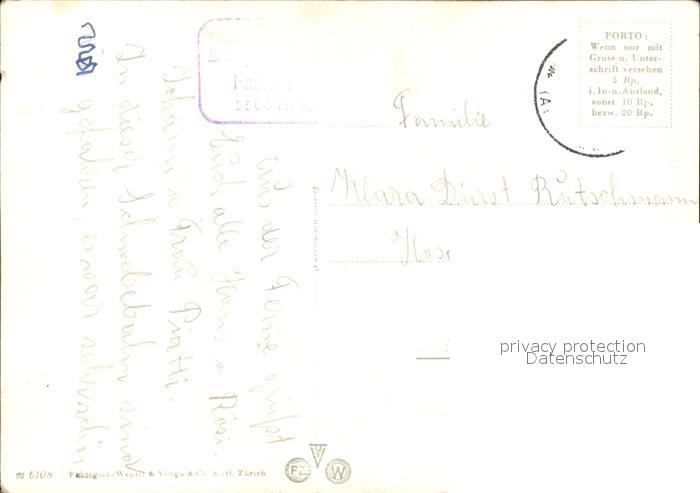 PORTO:
Wenn nur mit
Gruss u. Unter-
schrift versehen
5 Rp.
i. In- u. Ausland,
sonst 10 Rp.
bezw. 20 Rp.
Familie
Klara Dürst Rutschmann
Aus der Ferne grüßt
Euch alle Hans u Rösi.
Johanni u Frau Piatti.
In dieser Schwebebahn sind
gefahren, es war schön
privacy protection
Datenschutz
m 6108
& Co. A.-G. Zürich
FZ
W